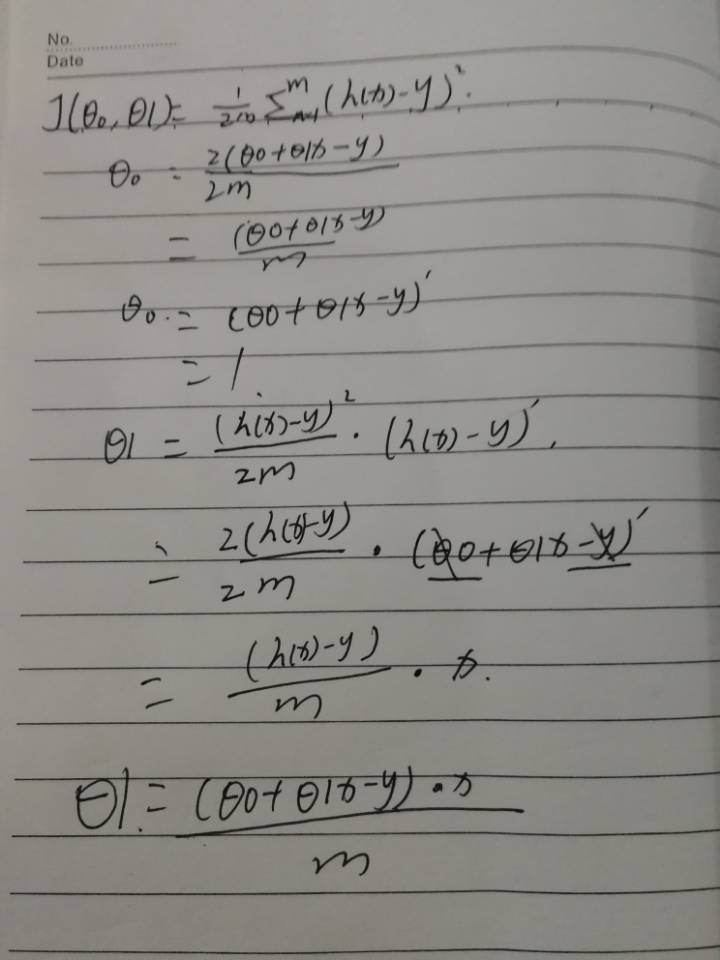 No.
Date
J(θ₀, θ1) = 1/2m Σᵐ (h(x)-y)².
θ₀ = 2(θ0+θ1x-y)/2m
= (θ0+θ1x-y)/m
θ₀. = (θ0+θ1x-y)′
= 1.
θ1 = (h(x)-y)²/2m · (h(x)-y)′.
= 2(h(x)-y)/2m · (θ0+θ1x-y)′
= (h(x)-y)/m · x.
θ1. = (θ0+θ1x-y)·x/m